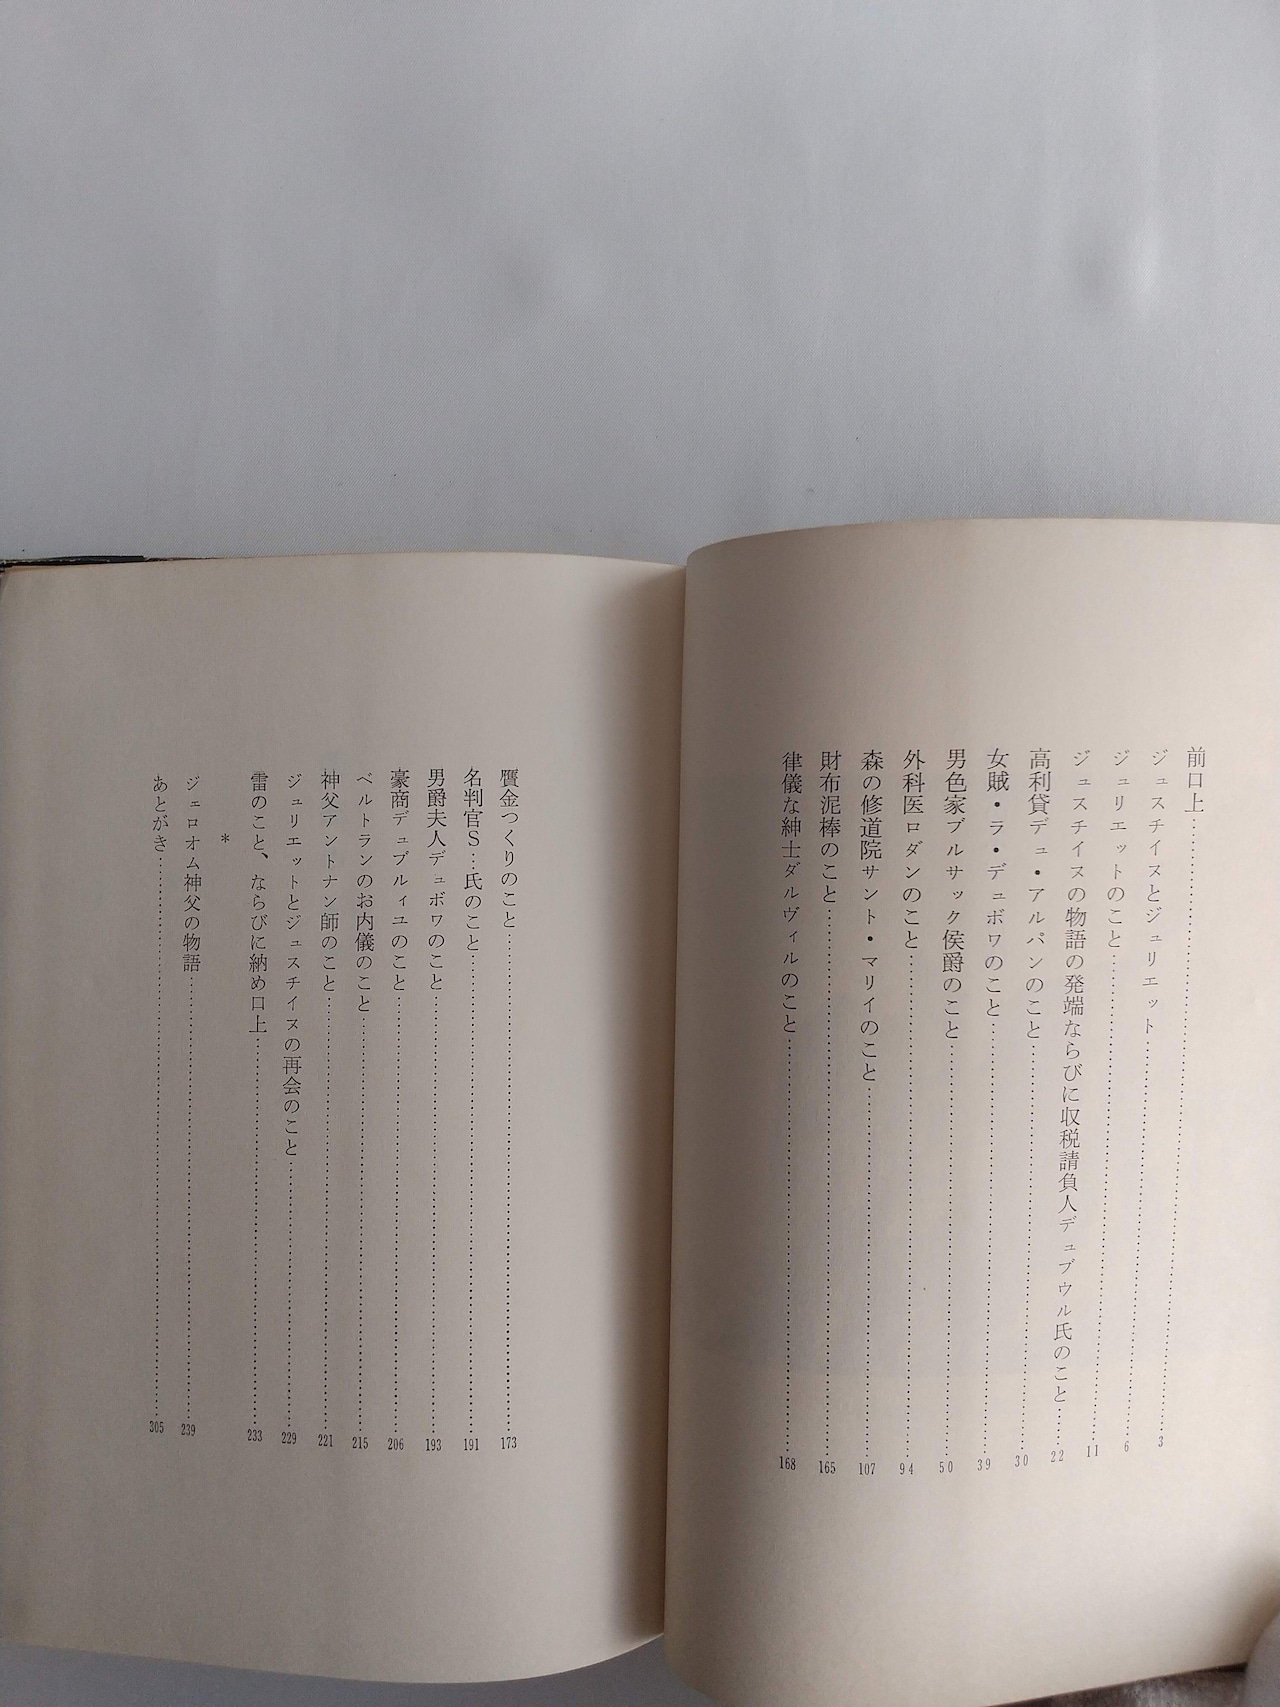 前口上……3
ジュスチイヌとジュリエット……6
ジュリエットのこと……11
ジュスチイヌの物語の発端ならびに収税請負人デュブウル氏のこと……22
高利貸デュ・アルパンのこと……30
女賊・ラ・デュボワのこと……39
男色家ブルサック侯爵のこと……50
外科医ロダンのこと……94
森の修道院サント・マリイのこと……107
財布泥棒のこと……165
律儀な紳士ダルヴィルのこと……168
贋金つくりのこと……173
名判官S…氏のこと……191
男爵夫人デュボワのこと……193
豪商デュブルィユのこと……206
ベルトランのお内儀のこと……215
神父アントナン師のこと……221
ジュリエットとジュスチイヌの再会のこと……229
雷のこと、ならびに納め口上……233
*
ジェロオム神父の物語……239
あとがき……305